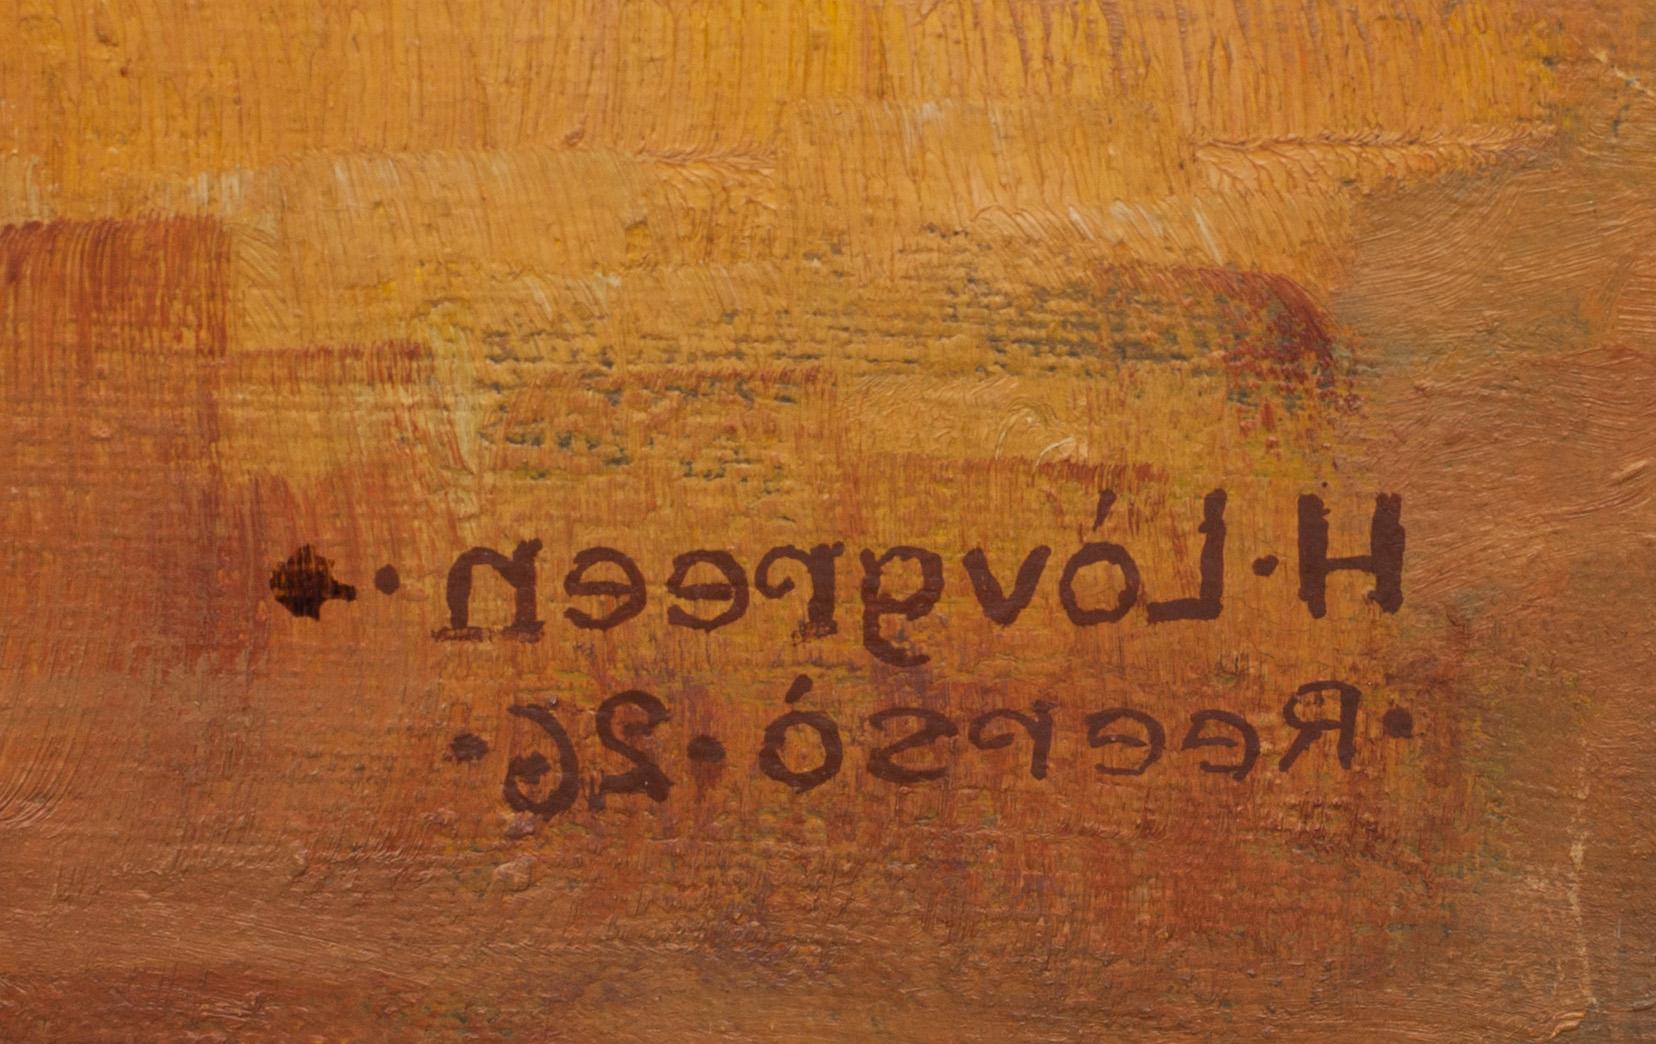 H·Lóvgreen·
·Reersó·26·